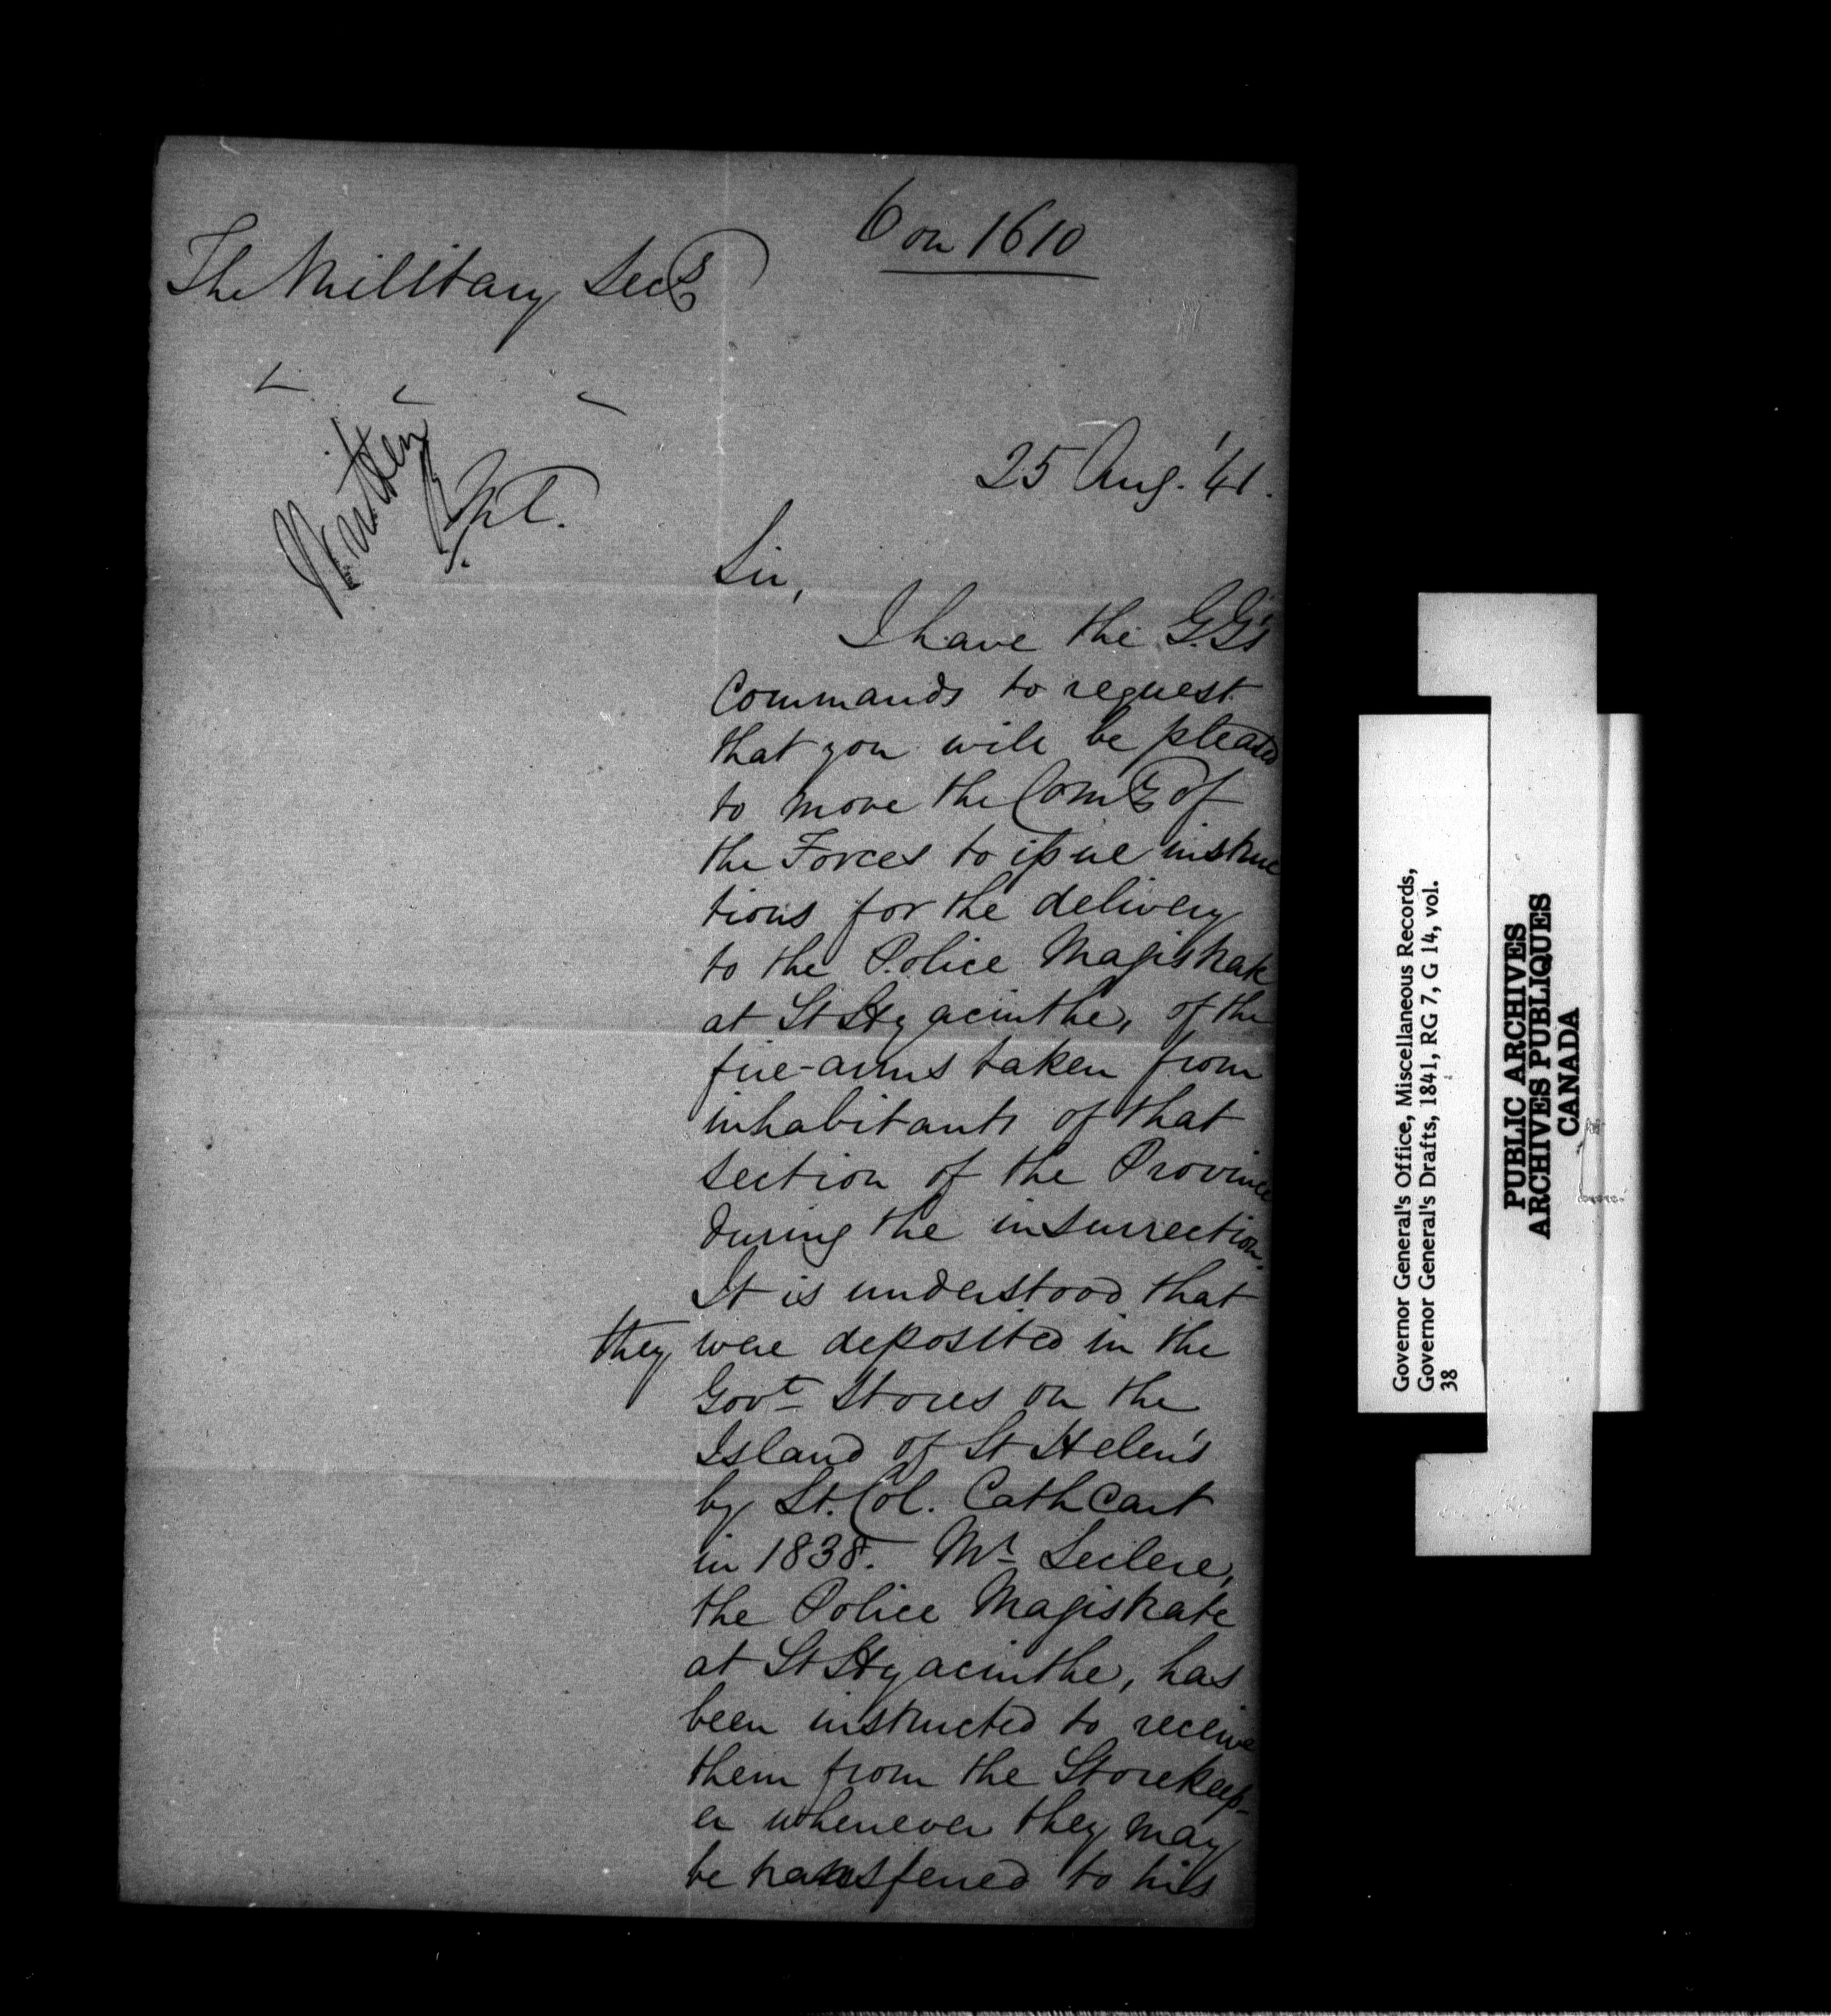 6 on 1610
The Military Secy
25 Aug. '41.
Sir,
I have the G.G's
Commands to request
that you will be pleased
to move the Comr of
the Forces to issue instruc
tions for the delivery
to the Police Magistrate
at St Hyacinthe, of the
fire-arms taken from
inhabitants of that
section of the Province
during the insurrection.
It is understood that
they were deposited in the
Govt Stores on the
Island of St Helen's
by Lt. Col. Cathcart
in 1838. Mr Leclere,
the Police Magistrate
at St Hyacinthe, has
been instructed to receive
them from the Storekeep-
er whenever they may
be transferred to his
Governor General's Office, Miscellaneous Records,
Governor General's Drafts, 1841, RG 7, G 14, vol.
38
PUBLIC ARCHIVES
ARCHIVES PUBLIQUES
CANADA